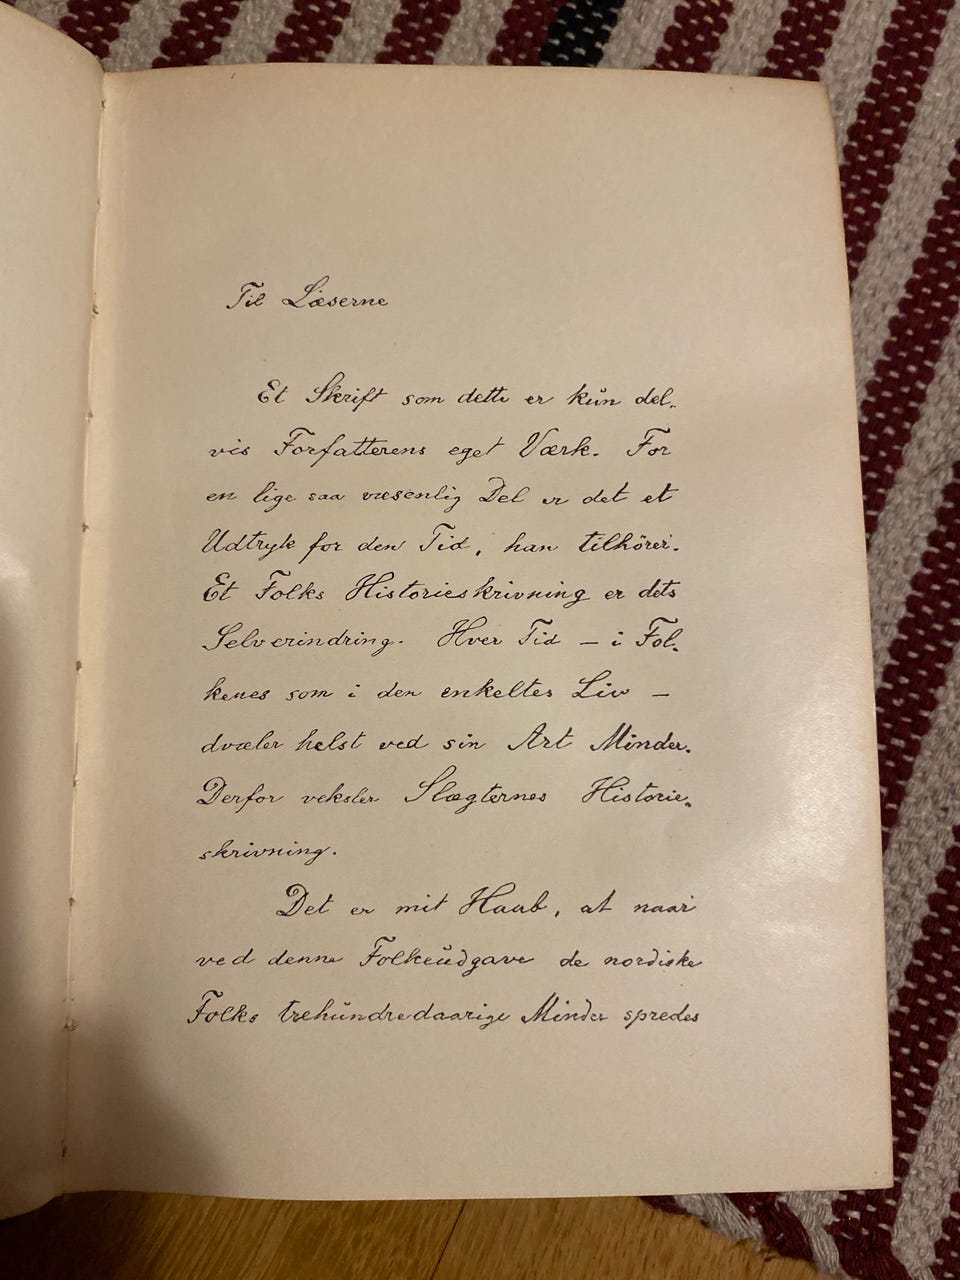 Til Læserne
Et Skrift som dette er kŭn del-
vis Forfatterens eget Værk. For
en lige saa væsenlig Del er det et
Udtryk for den Tid, han tilhörer.
Et Folks Historieskrivning er dets
Selverindring. Hver Tid — i Fol-
kenes som i den enkeltes Liv —
dvæler helst ved sin Art Minder.
Derfor veksler Slægternes Historie-
skrivning.
Det er mit Haab, at naar
ved denne Folkeŭdgave de nordiske
Folks trehŭndredaarige Minder spredes